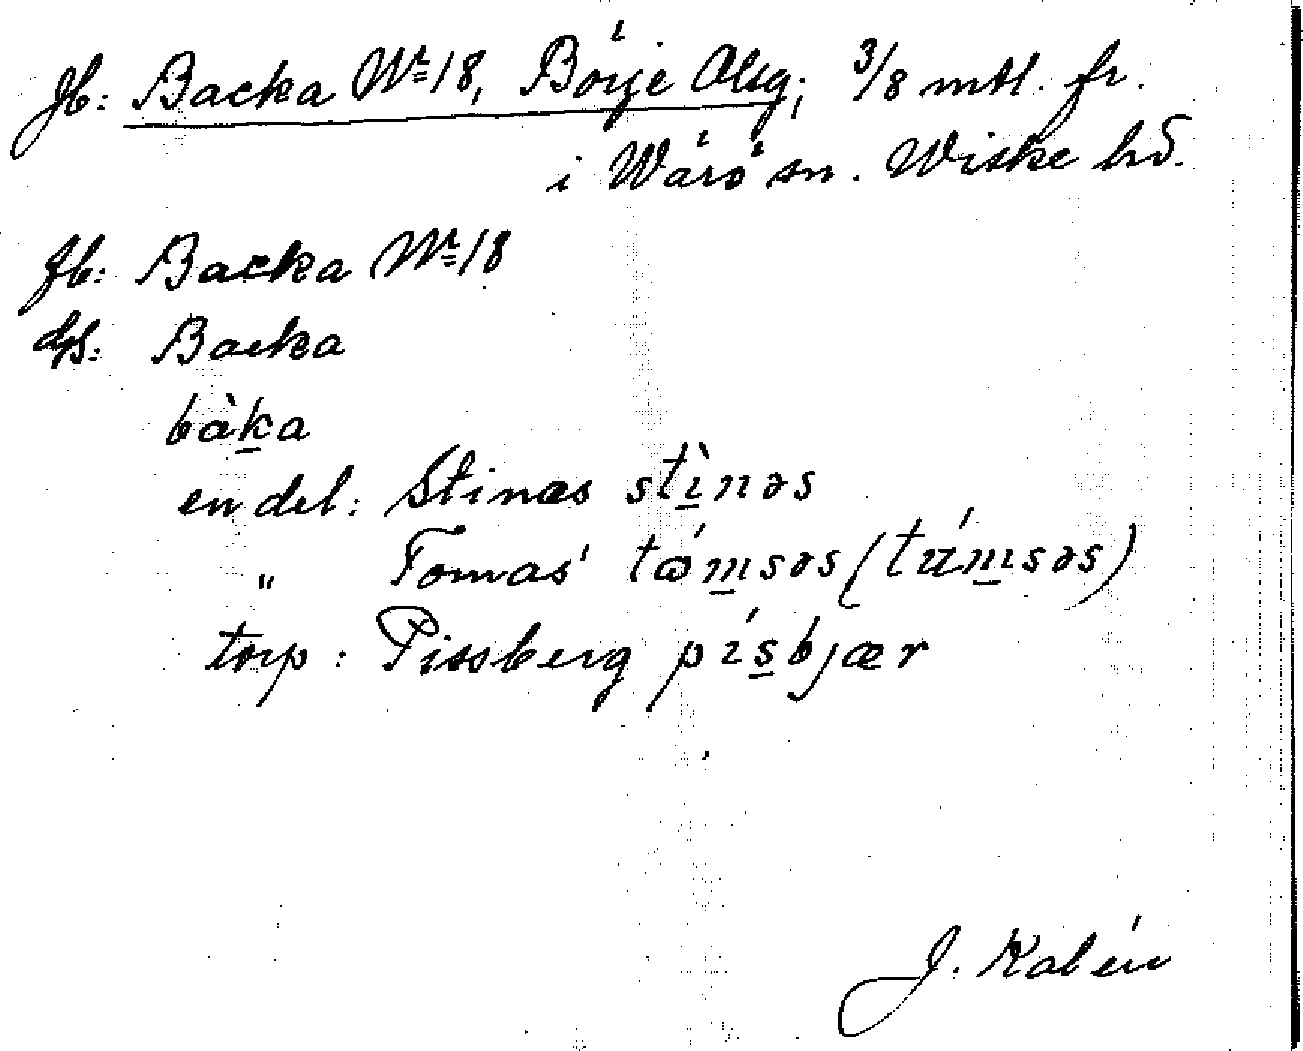 Jb: Backa Nr 18, Börje Alsg; 3/8 mtl. fr.
i Wärö sn. Wiske hd.
Jb: Backa Nr 18
ds: Backa
bàk̲a
en del: Stinas stì̲nəs
" Tomas' tɷ́m̲səs (tú̶m̲səs)
torp: Pissberg pís̲bjær
J. Kalén